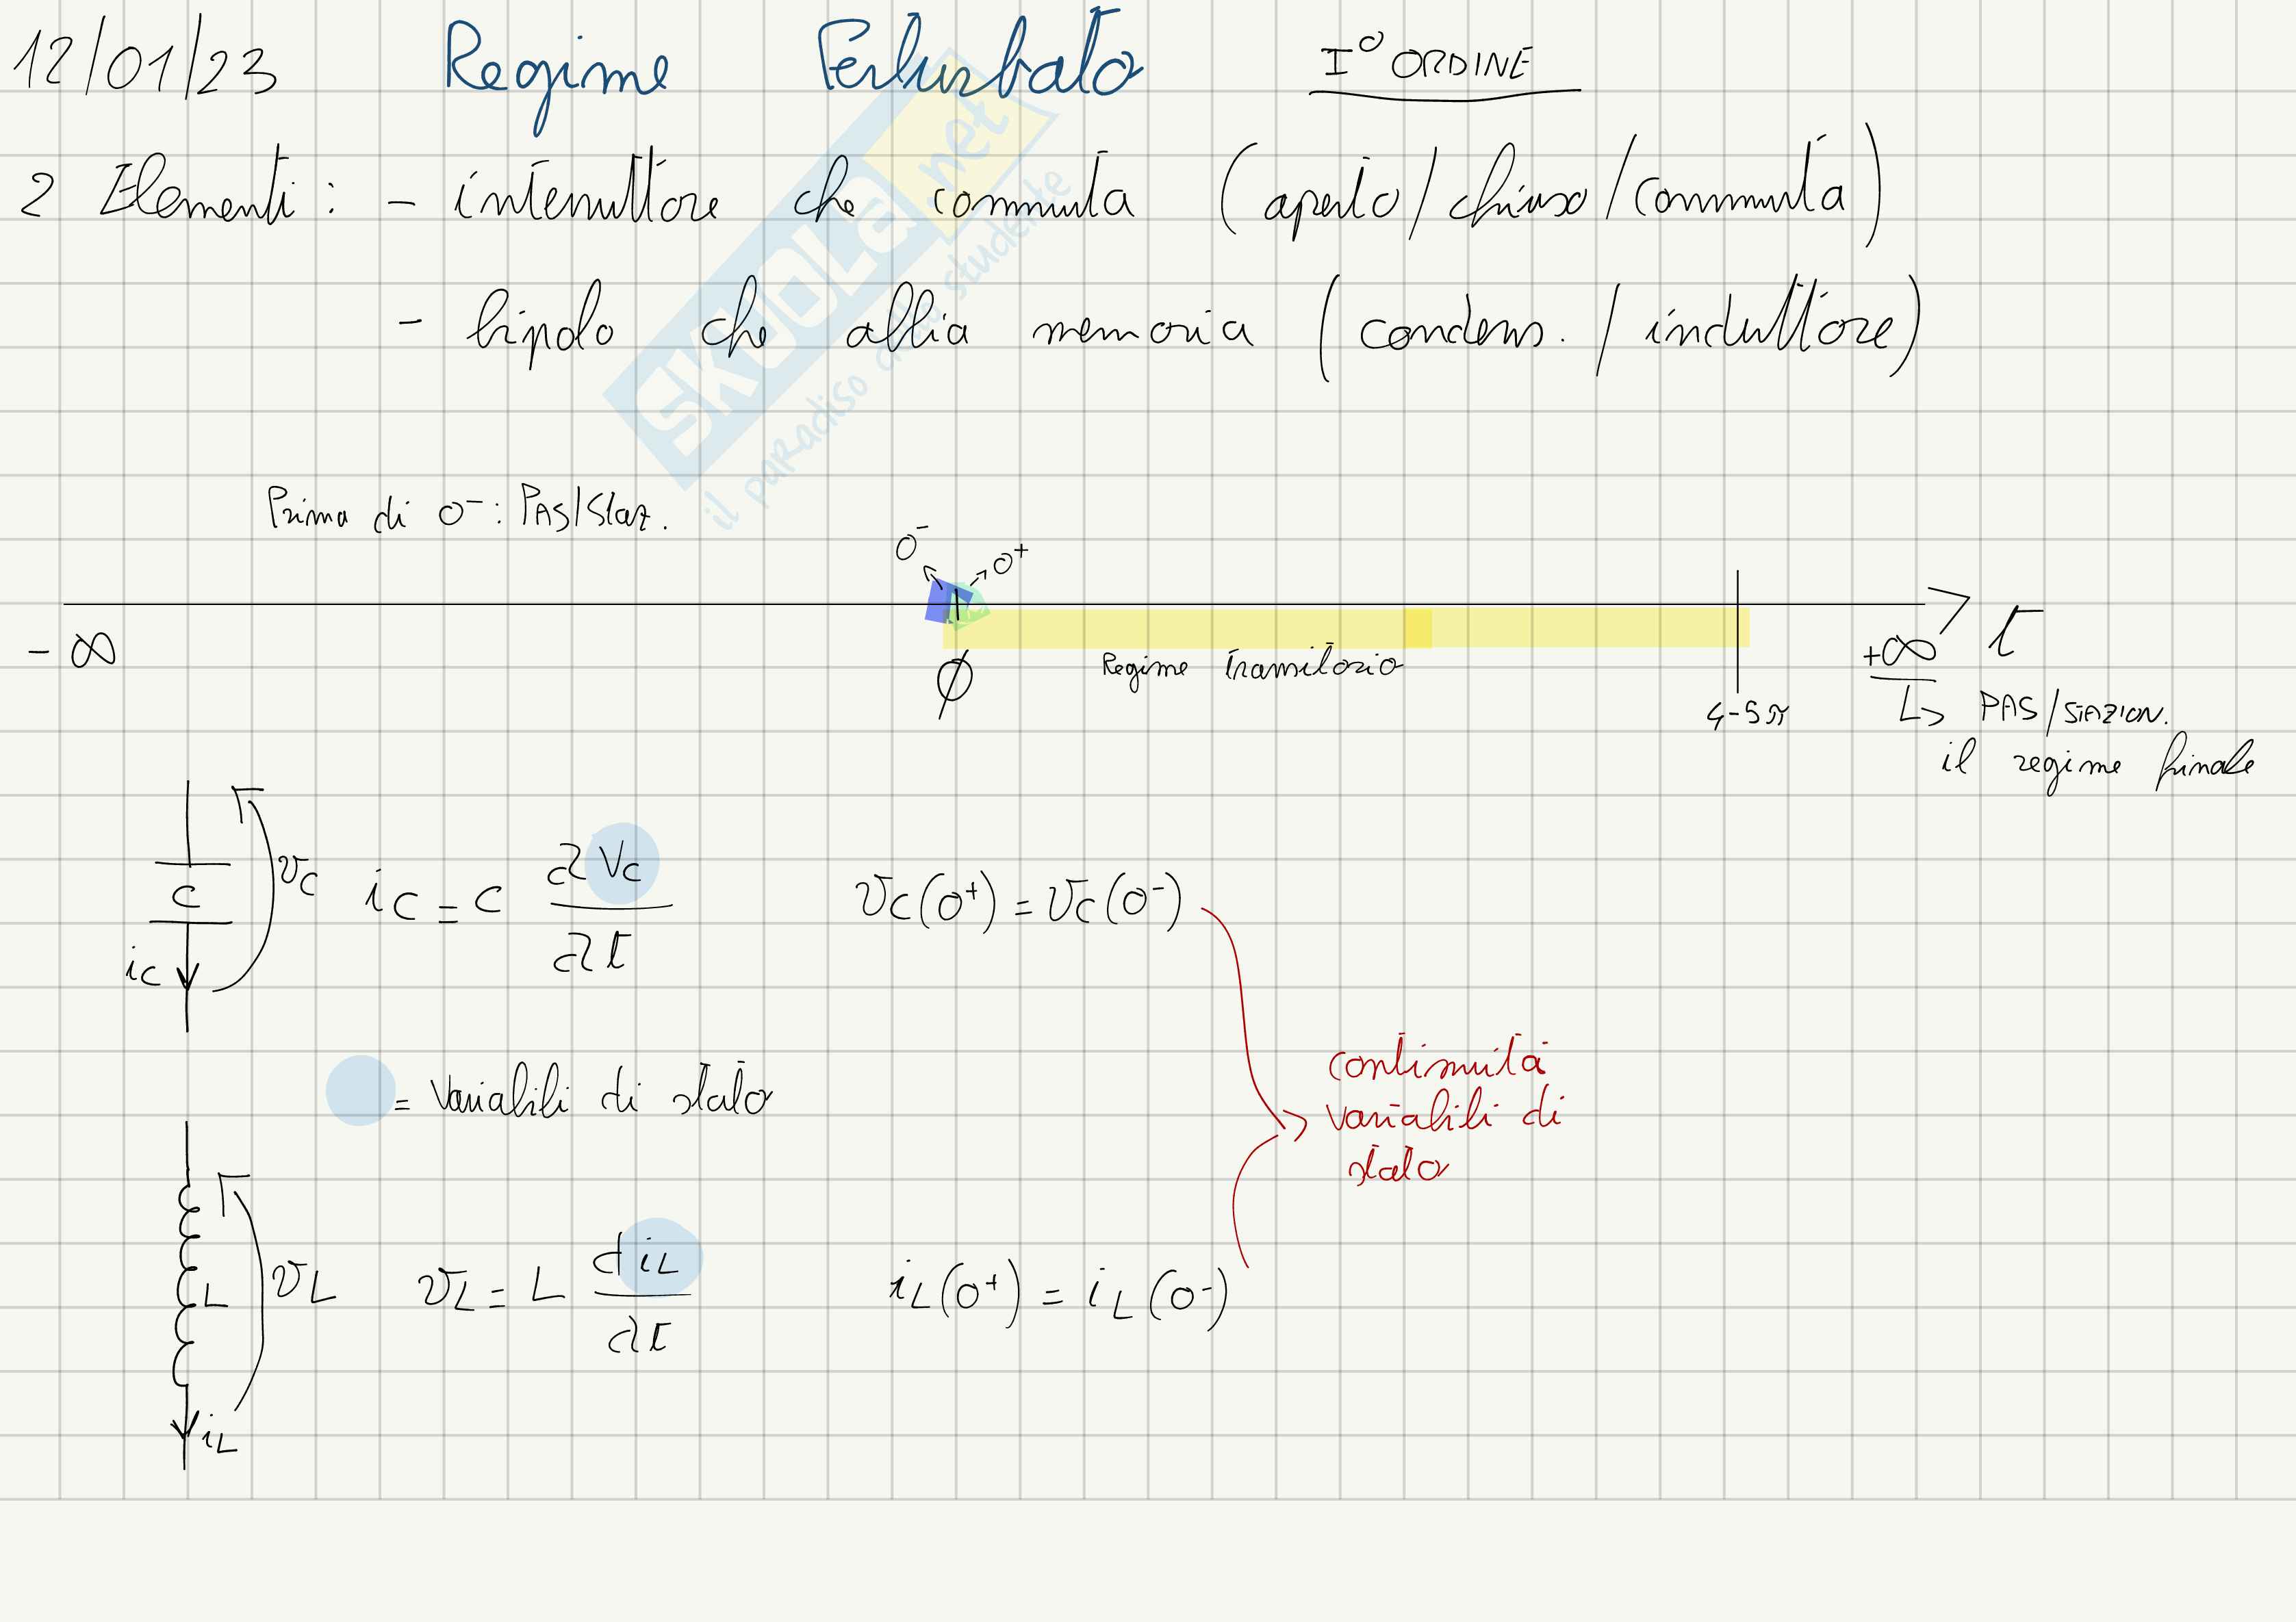 12/01/23 Regime Perturbato I° ORDINE
2 Elementi: - interruttore che commuta (aperto/chiuso/commuta)
- bipolo che abbia memoria (condens. / induttore)
SKUOLA.net
il paradiso dello studente
Prima di 0⁻: PAS/Staz.
0⁻ 0⁺
-∞ ∅ Regime transitorio 4-5π +∞ t
↳ PAS/STAZION.
il regime finale
C v_C i_C = C dv_C/dt v_C(0⁺) = v_C(0⁻)
i_C
continuità
variabili di
stato
= Variabili di stato
L v_L v_L = L di_L/dt i_L(0⁺) = i_L(0⁻)
i_L